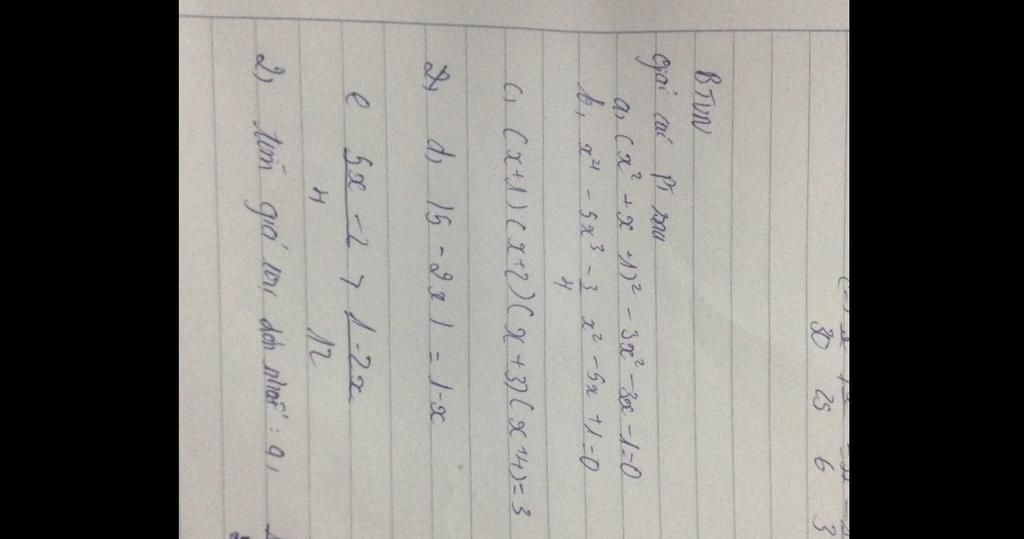 BTVN
Giải các pt sau
a, (x² + x + 1)² - 3x² - 3x - 1 = 0
b, x⁴ - 5x³ - 3/4 x² - 5x + 1 = 0
c, (x+1)(x+2)(x+3)(x+4) = 3
2, d, |5 - 2x| = 1-x
e 5x - 2 / 4 > 1 - 2x / 12
2, Tìm giá trị nhất : a,
30 25 6 3